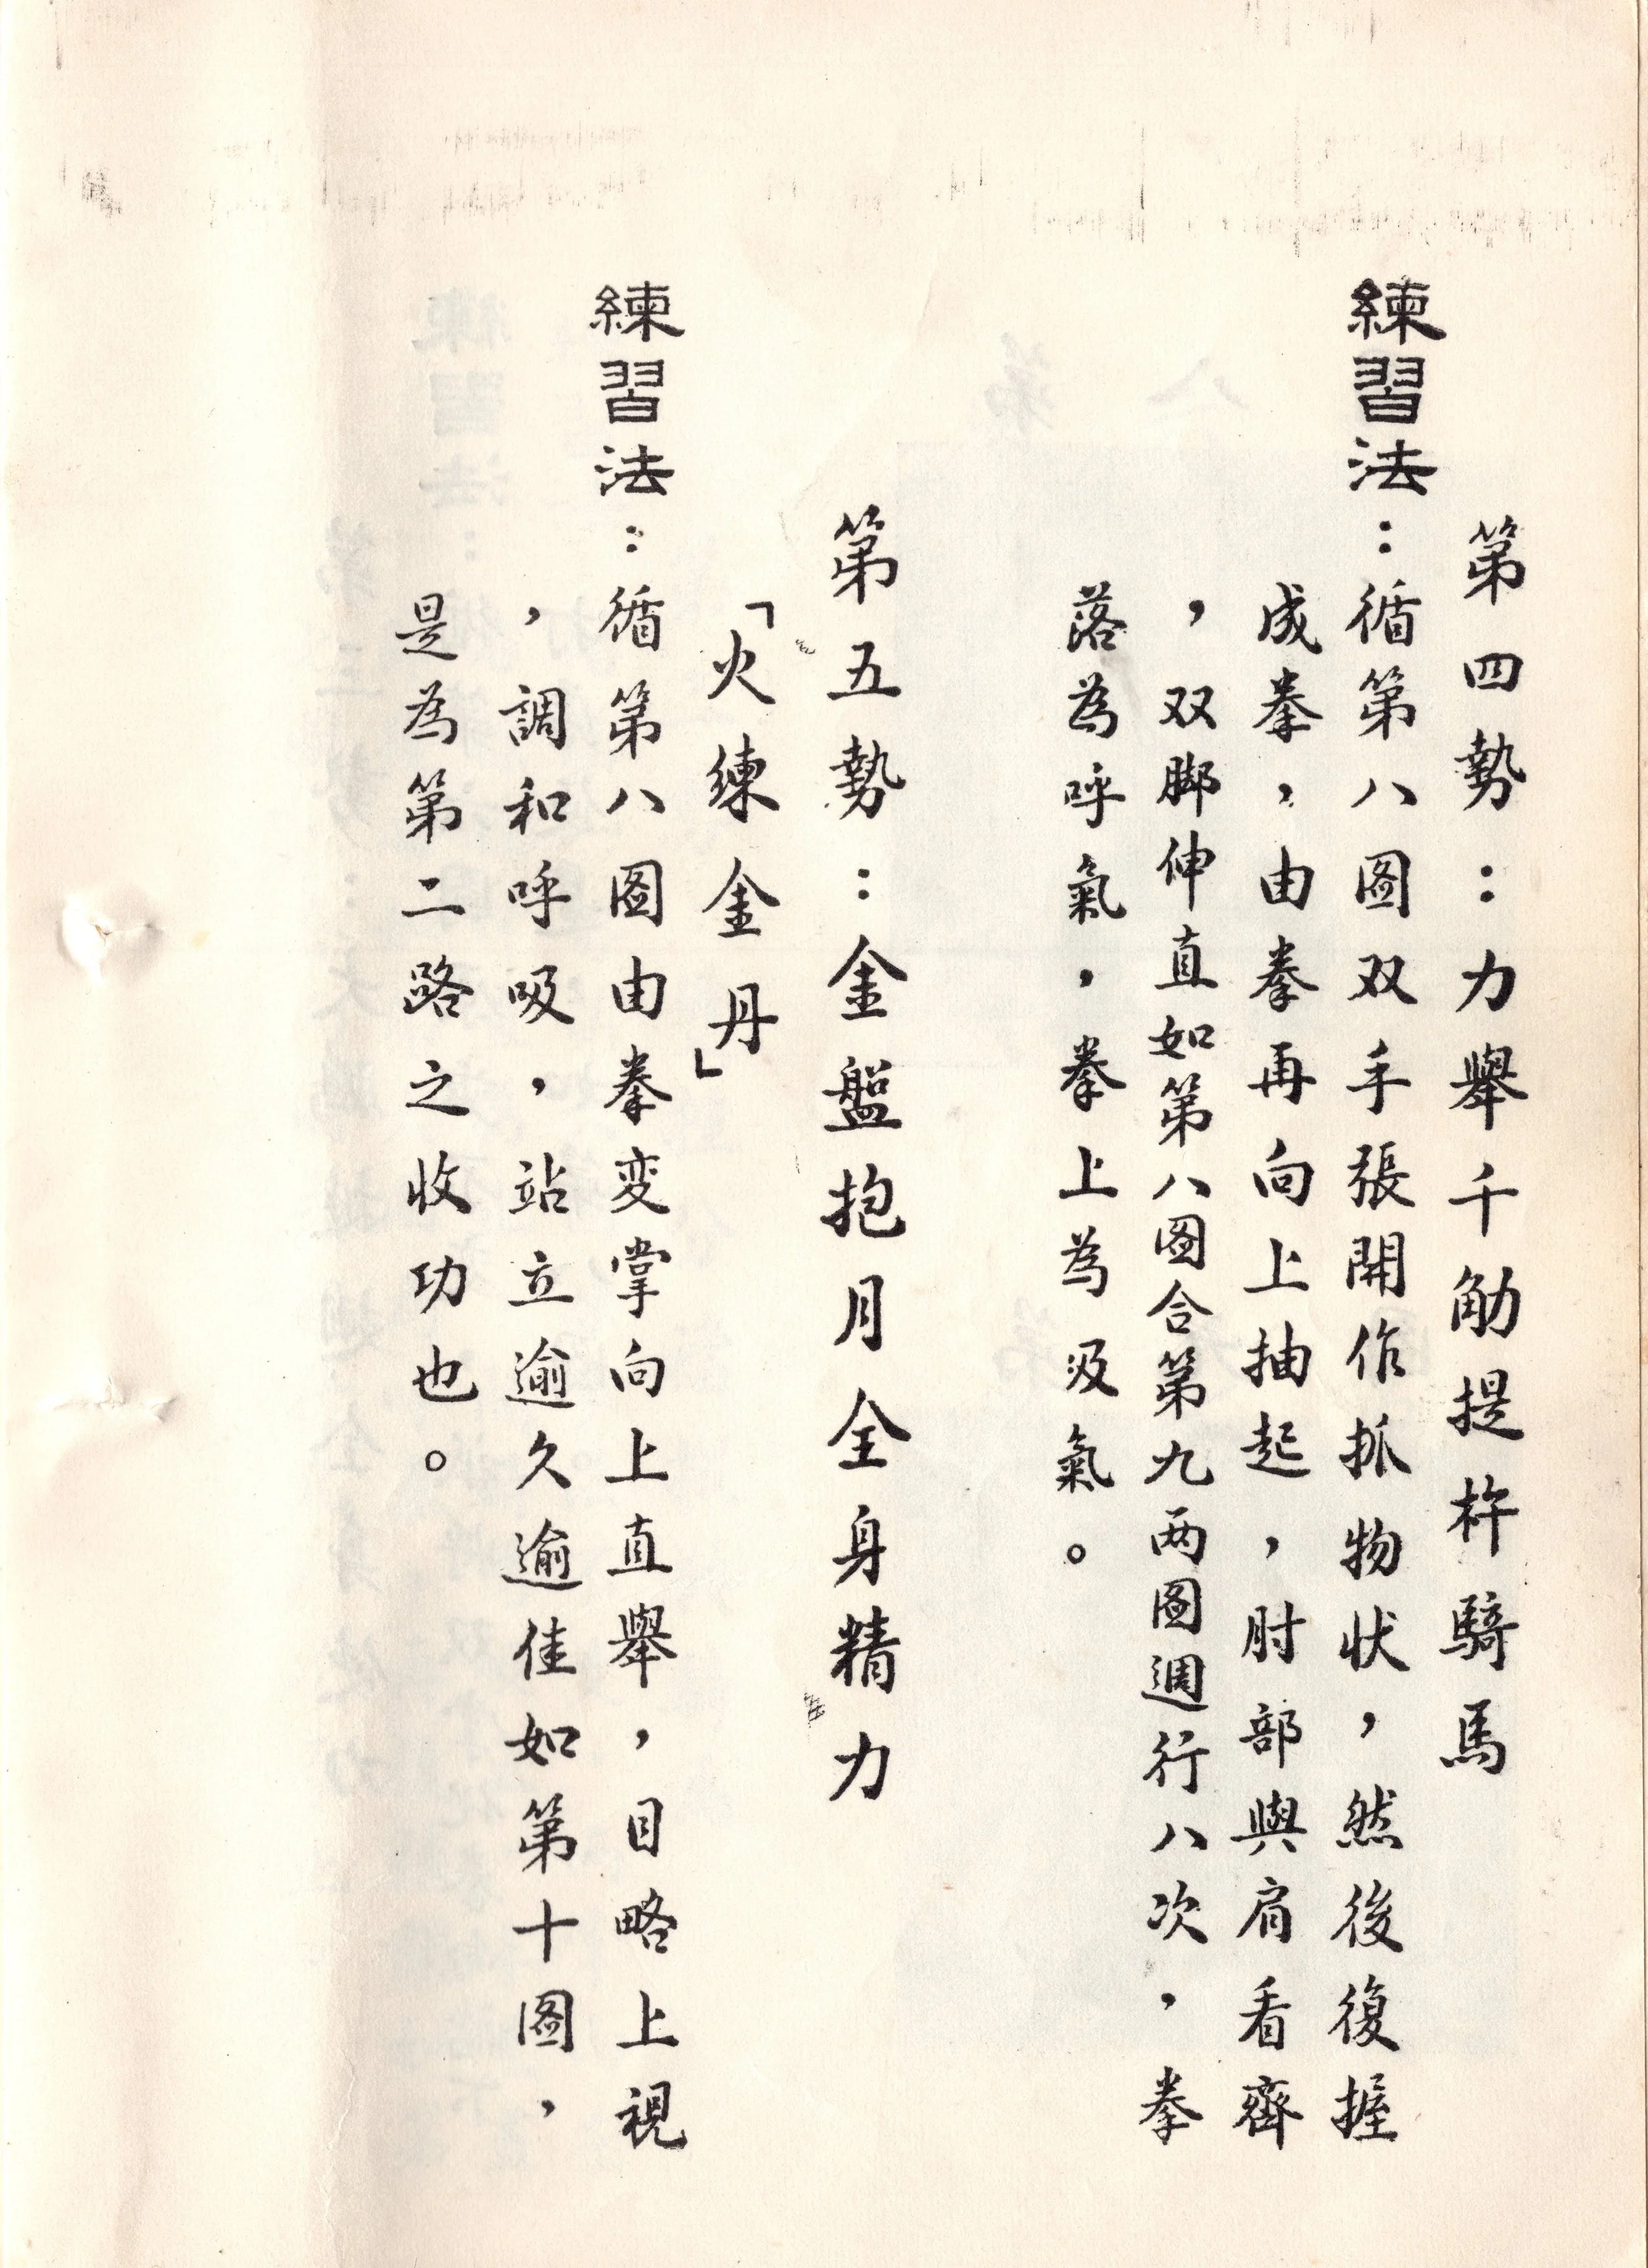 第四勢：力舉千觔提杵騎馬
練習法：循第八图双手張開作抓物状，然後復握
成拳，由拳再向上抽起，肘部與肩看齊
，双脚伸直如第八图合第九两图週行八次，拳
落為呼氣，拳上為汲氣。
第五勢：金盤抱月全身精力
「火練金丹」
練習法：循第八图由拳変掌向上直舉，目略上視
，調和呼吸，站立逾久逾佳如第十图，
是為第二路之收功也。